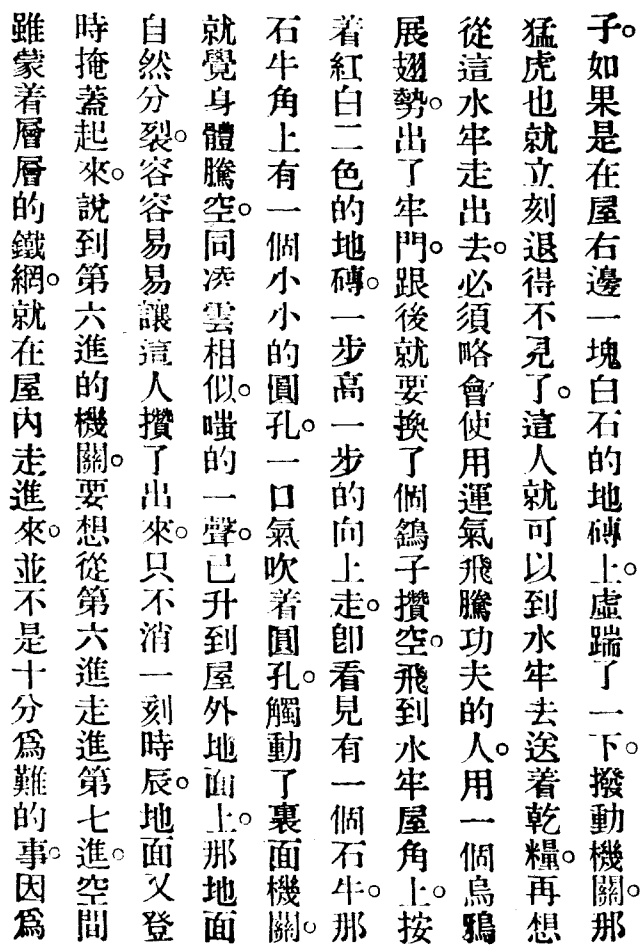 子。如果是在屋右邊一塊白石的地磚上。虛踹了一下。撥動機關。那
猛虎也就立刻退得不見了。這人就可以到水牢去送着乾糧。再想
從這水牢走出去。必須略會使用運氣飛騰功夫的人。用一個烏鴉
展翅勢。出了牢門。跟後就要換了個鷂子攢空。飛到水牢屋角上。按
着紅白二色的地磚。一步高一步的向上走。卽看見有一個石牛。那
石牛角上有一個小小的圓孔。一口氣吹着圓孔。觸動了裏面機關。
就覺身體騰空。同凌雲相似。嗤的一聲。已升到屋外地面上。那地面
自然分裂。容容易易讓這人攢了出來。只不消一刻時辰。地面又登
時掩蓋起來。說到第六進的機關。要想從第六進走進第七進。空間
雖蒙着層層的鐵網。就在屋內走進來。並不是十分爲難的事。因爲